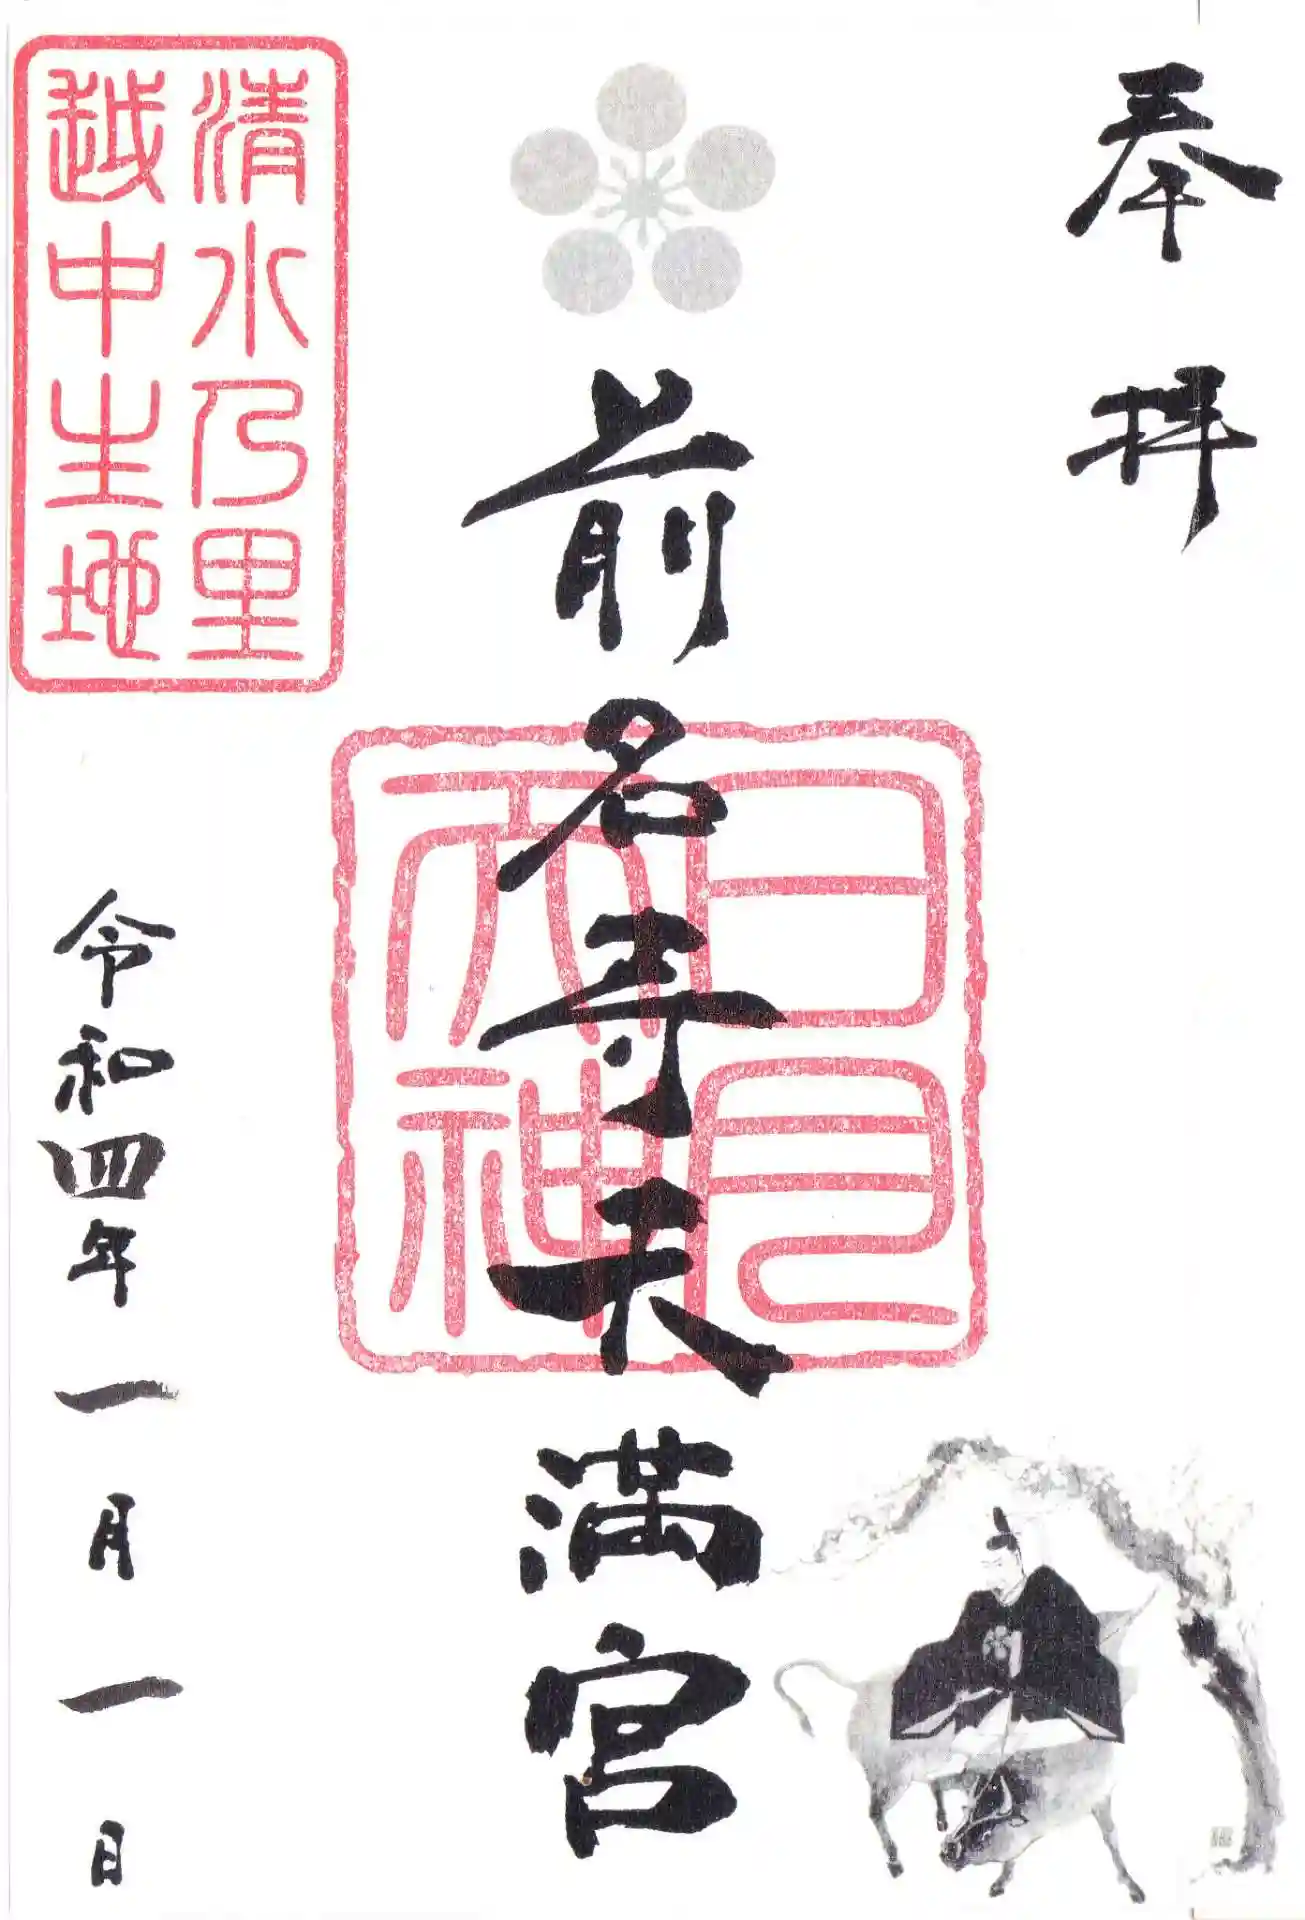 奉拝
前名寺天満宮
日吉
大神
清水乃里
越中生地
令和四年一月一日